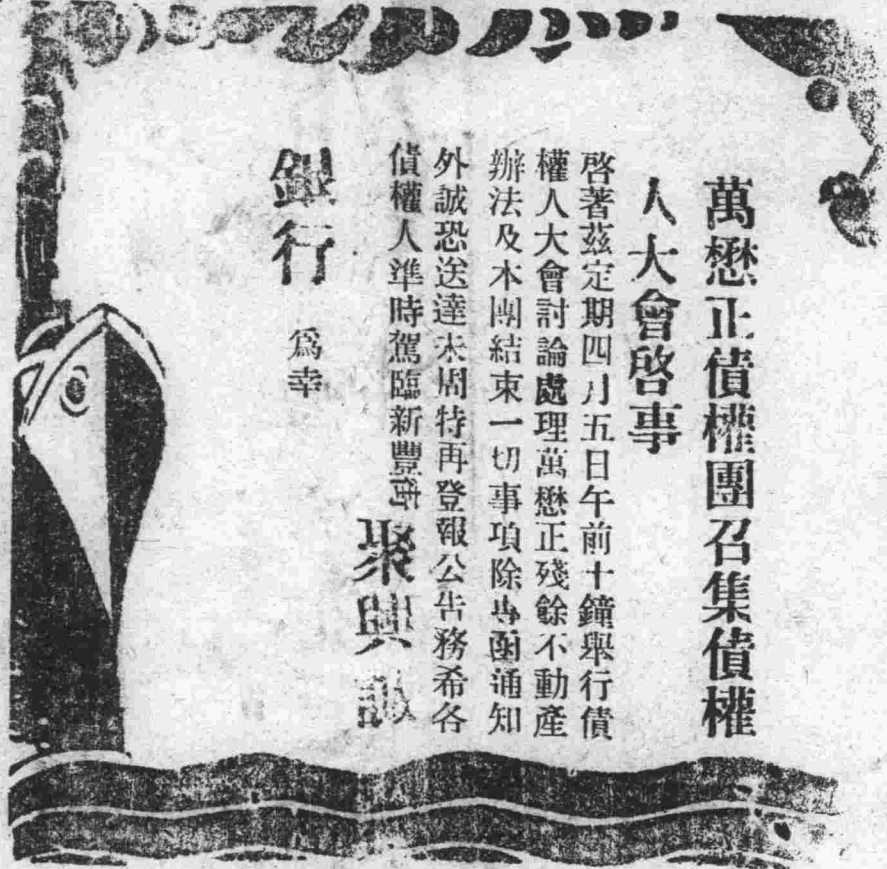 萬懋正債權團召集債權
人大會啓事
啓著茲定期四月五日午前十鐘舉行債
權人大會討論處理萬懋正殘餘不動產
辦法及本團結束一切事項除專函通知
外誠恐送達未周特再登報公告務希各
債權人準時駕臨新豐街聚興誠
銀行為幸